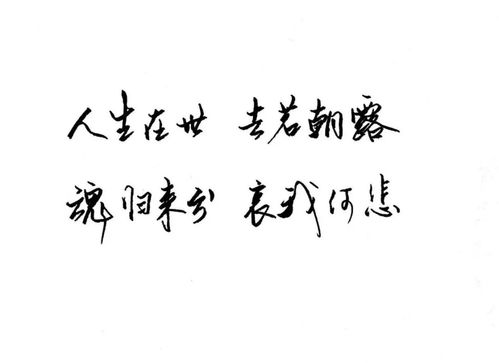 人生在世 去若朝露
魂归来兮 哀我何悲